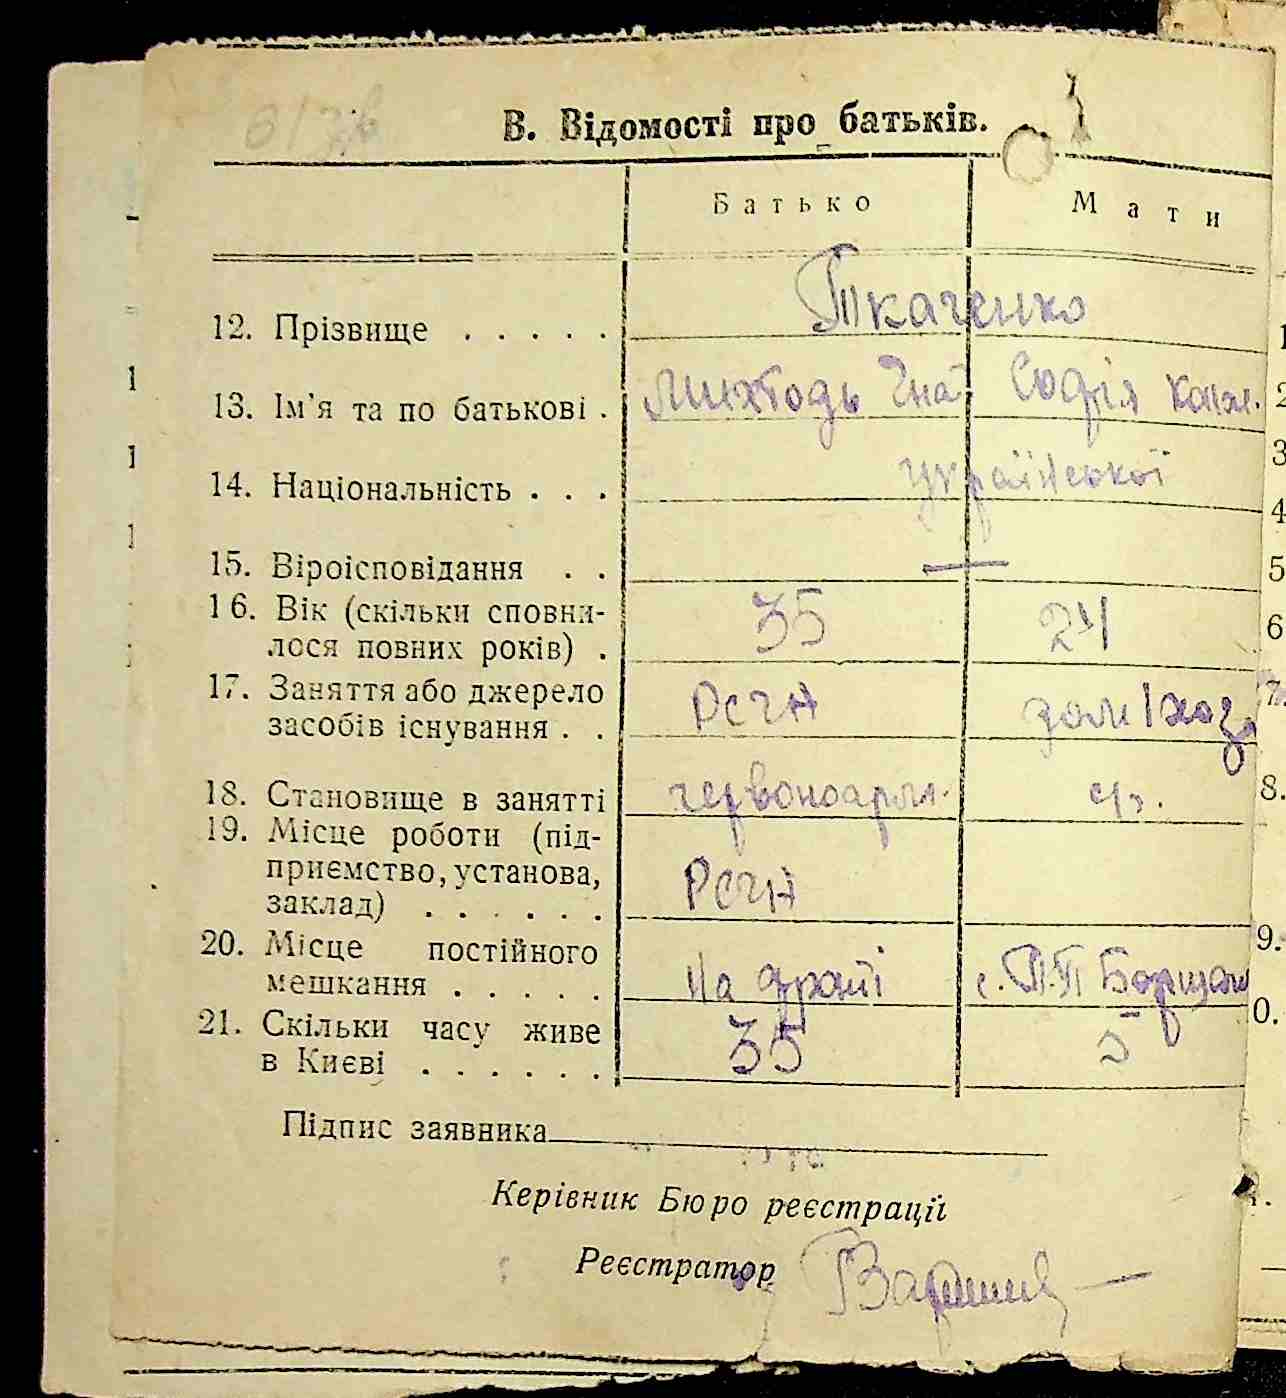 В. Відомості про батьків.
Батько Мати
12. Прізвище . . . . . Ткаченко
13. Ім'я та по батькові . Мефодь Гна Софія
14. Національність . . . української
15. Віроісповідання . . —
16. Вік (скільки сповни- 35 24
лося повних років) .
17. Заняття або джерело РСЧА дом/хаз.
засобів існування . .
18. Становище в занятті червоноарм.
19. Місце роботи (під-
приємство, установа, РСЧА
заклад) . . . . . .
20. Місце постійного
мешкання . . . . . На фроті с. П.П Борщаг
21. Скільки часу живе 35 5
в Києві . . . . . .
Підпис заявника
Керівник Бюро реєстрації
Реєстратор